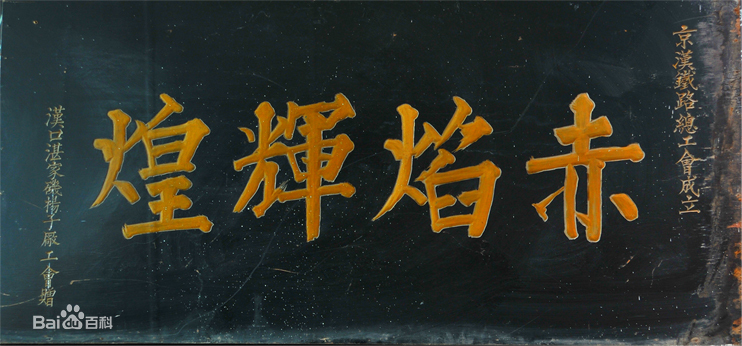 京漢鐵路總工會成立
赤焰輝煌
漢口湛家磯揚子廠工會贈
Baidu百科